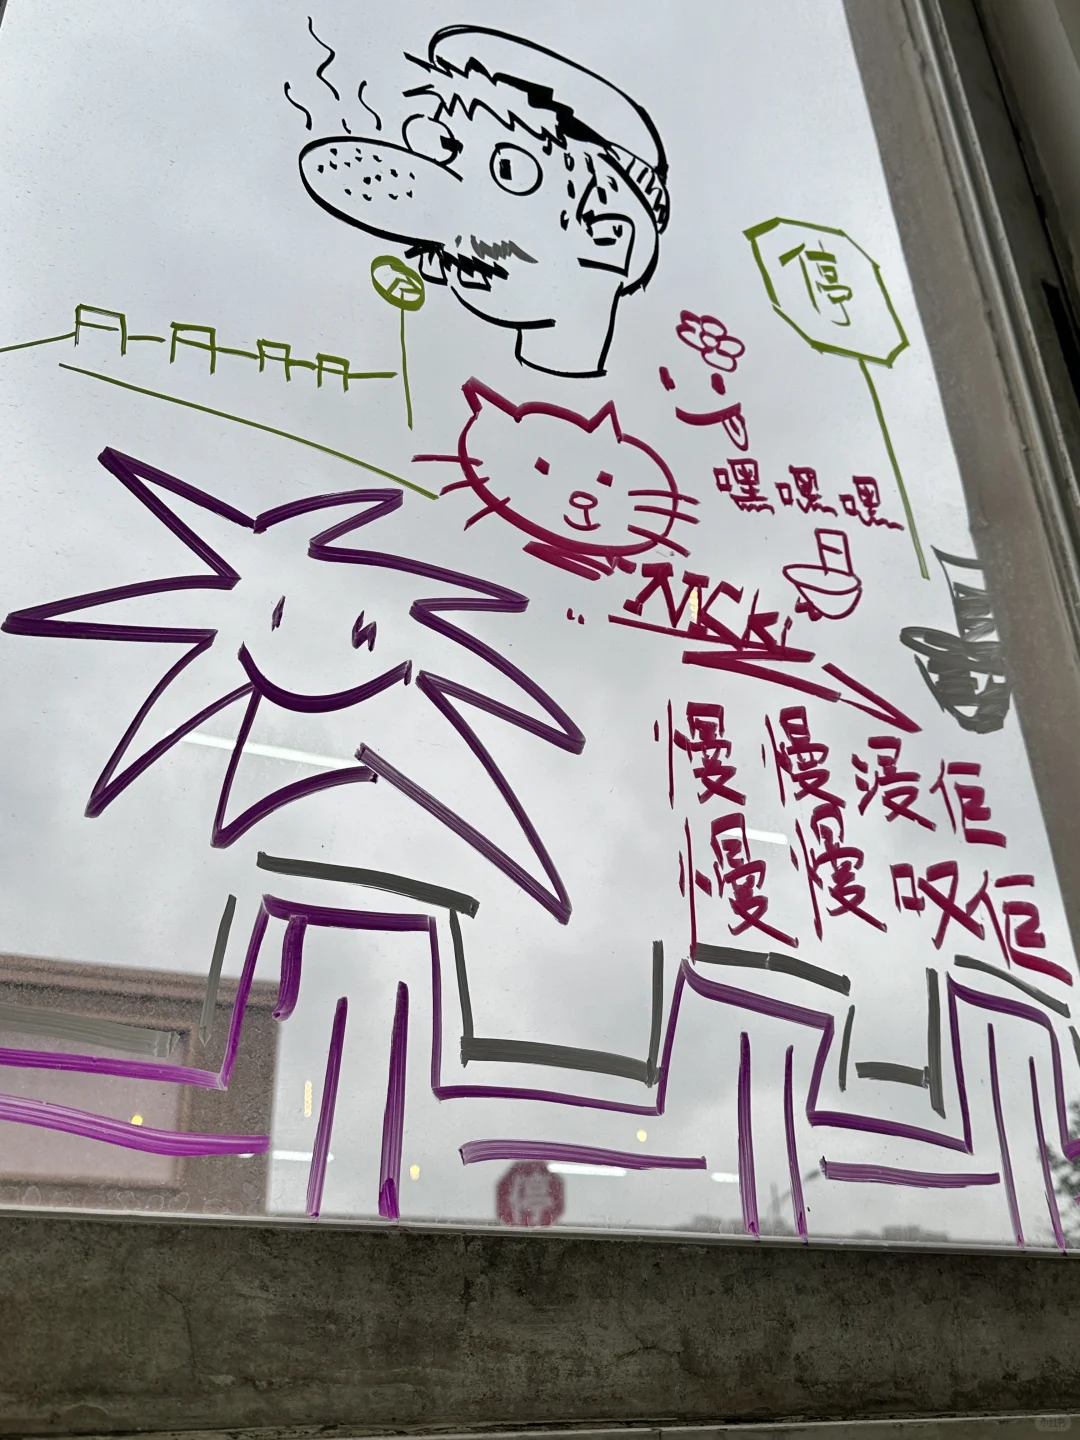 停
嘿嘿嘿
NICK
慢慢浸佢
慢慢叹佢
停